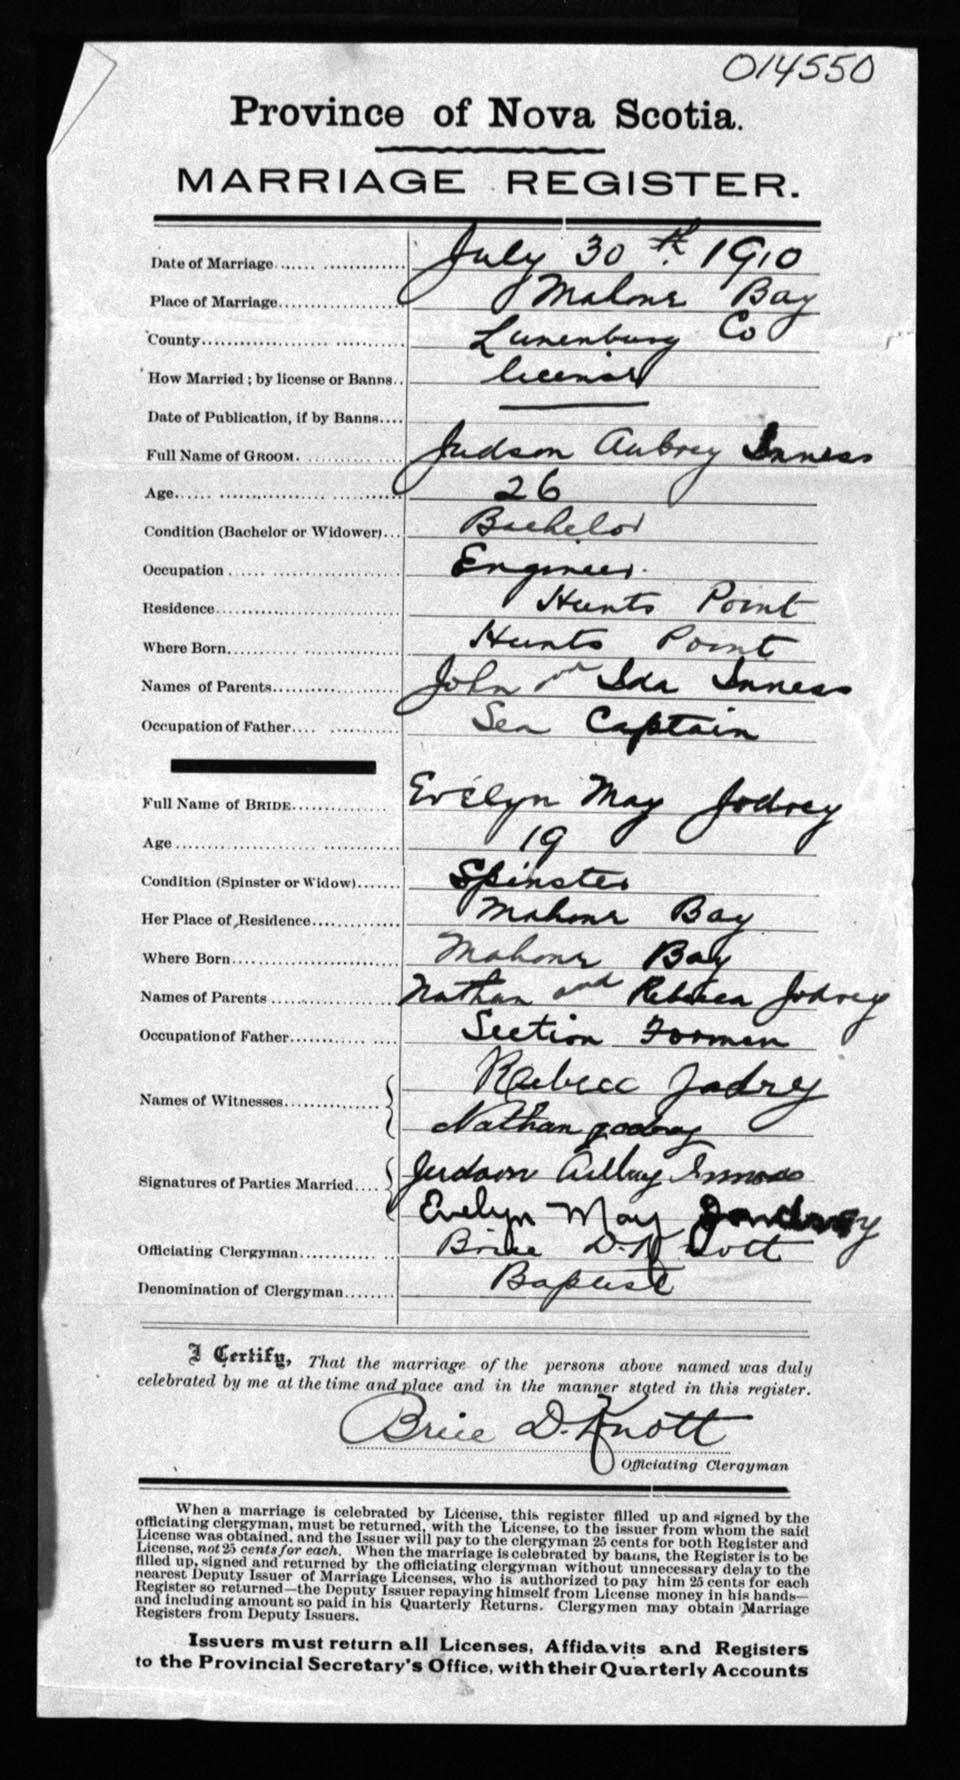 014550
Province of Nova Scotia.
MARRIAGE REGISTER.
Date of Marriage July 30th 1910
Place of Marriage Mahone Bay
County Lunenburg Co
How Married; by license or Banns license
Date of Publication, if by Banns
Full Name of GROOM. Judson Aubrey Inness
Age 26
Condition (Bachelor or Widower) Bachelor
Occupation Engineer.
Residence Hunts Point
Where Born Hunts Point
Names of Parents John and Ida Inness
Occupation of Father Sea Captain
Full Name of BRIDE Evelyn May Jodrey
Age 19
Condition (Spinster or Widow) Spinster
Her Place of Residence Mahone Bay
Where Born Mahone Bay
Names of Parents Nathan and Rebecca Jodrey
Occupation of Father Section Forman
Names of Witnesses Rebecc Jodrey
Nathan Jodrey
Signatures of Parties Married Judson Inness
Evelyn May
Officiating Clergyman Brice D. Knott
Denomination of Clergyman Baptist
I Certify, That the marriage of the persons above named was duly
celebrated by me at the time and place and in the manner stated in this register.
Brice D. Knott
Officiating Clergyman
When a marriage is celebrated by License, this register filled up and signed by the
officiating clergyman, must be returned, with the License, to the issuer from whom the said
License was obtained, and the Issuer will pay to the clergyman 25 cents for both Register and
License, not 25 cents for each. When the marriage is celebrated by banns, the Register is to be
filled up, signed and returned by the officiating clergyman without unnecessary delay to the
nearest Deputy Issuer of Marriage Licenses, who is authorized to pay him 25 cents for each
Register so returned—the Deputy Issuer repaying himself from License money in his hands—
and including amount so paid in his Quarterly Returns. Clergymen may obtain Marriage
Registers from Deputy Issuers.
Issuers must return all Licenses, Affidavits and Registers
to the Provincial Secretary's Office, with their Quarterly Accounts